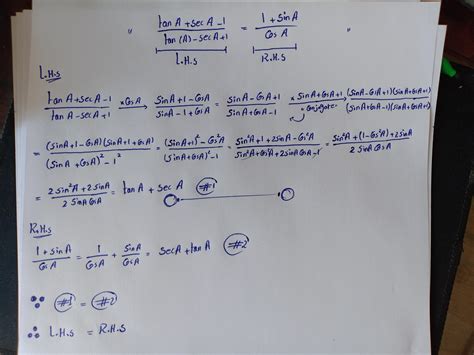 " (tan A + sec A - 1)/(tan(A) - sec A + 1) = (1 + sin A)/(cos A) "
L.H.S R.H.S
L.H.S
(tan A + sec A - 1)/(tan A - sec A + 1) × cos A → (sin A + 1 - cos A)/(sin A - 1 + cos A) = (sin A - cos A + 1)/(sin A + cos A - 1) × sin A + cos A + 1 "Conjugate" → (sin A - cos A + 1)(sin A + cos A + 1)/(sin A + cos A - 1)(sin A + cos A + 1)
= (sin A + 1 - cos A)(sin A + 1 + cos A)/((sin A + cos A)² - 1²) = ((sin A + 1)² - cos² A)/((sin A + cos A)² - 1) = (sin² A + 1 + 2 sin A - cos² A)/(sin² A + cos² A + 2 sin A cos A - 1) = (sin² A + (1 - cos² A) + 2 sin A)/(2 sin A cos A)
= (2 sin² A + 2 sin A)/(2 sin A cos A) = tan A + sec A #1
R.H.S
(1 + sin A)/(cos A) = 1/(cos A) + (sin A)/(cos A) = sec A + tan A #2
∵ #1 = #2
∴ L.H.S = R.H.S